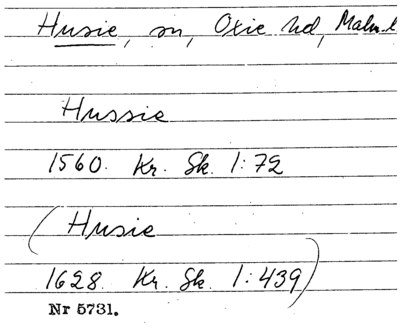 Husie, sn, Oxie hd, Malm.l
Hussie
1560. Kr. Sk. 1:72
(Husie
1628. Kr. Sk. 1:439)
Nr 5731.